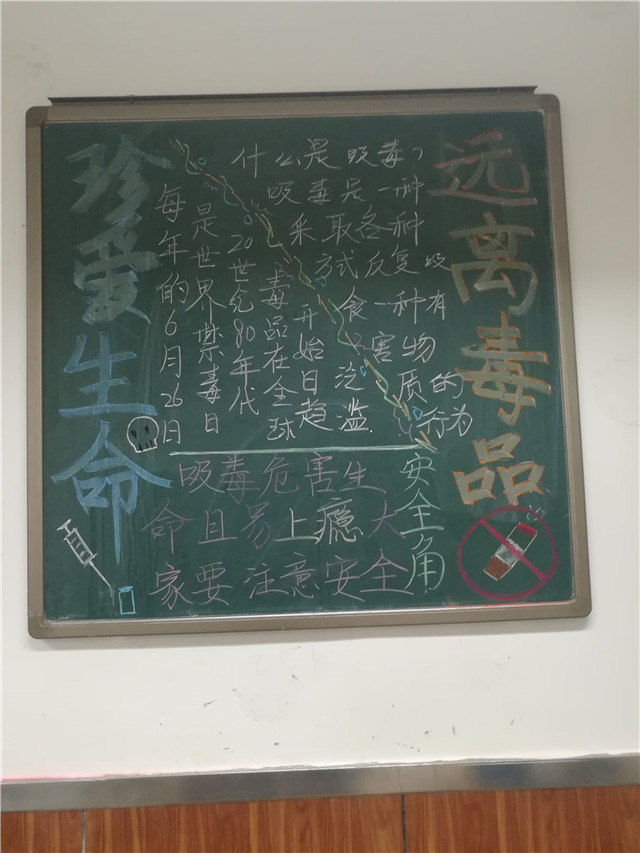 珍爱生命
远离毒品
什么是吸毒?
吸毒是一种
采取各种
方式反复吸
食一种有
害物
质的
行为
每年的6月26日
是世界禁毒日
20世纪80年代
毒品在全球
开始日趋
泛
安全角
吸毒危害生
命且易上瘾大
家要注意安全